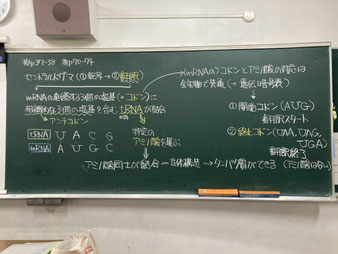 セントラルドグマ (①転写 → ②翻訳)
mRNAの連続する3個の塩基(=コドン)に
相補的な3個の塩基を含むtRNAが結合
アンチコドン
特定の
アミノ酸を運ぶ
tRNA U A C G
mRNA A U G C
アミノ酸同士が結合 → 立体構造 → タンパク質ができる
(mRNAの)コドンとアミノ酸の対応は
全生物で共通 (→ 遺伝暗号表)
① 開始コドン (AUG)
翻訳スタート
② 終止コドン (UAA, UAG,
UGA)
翻訳終了
(アミノ酸はない)